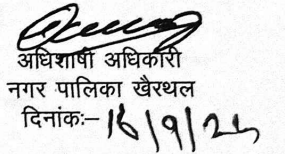 अधिशाषी अधिकारी
नगर पालिका खैरथल
दिनांकः– 16/9/24